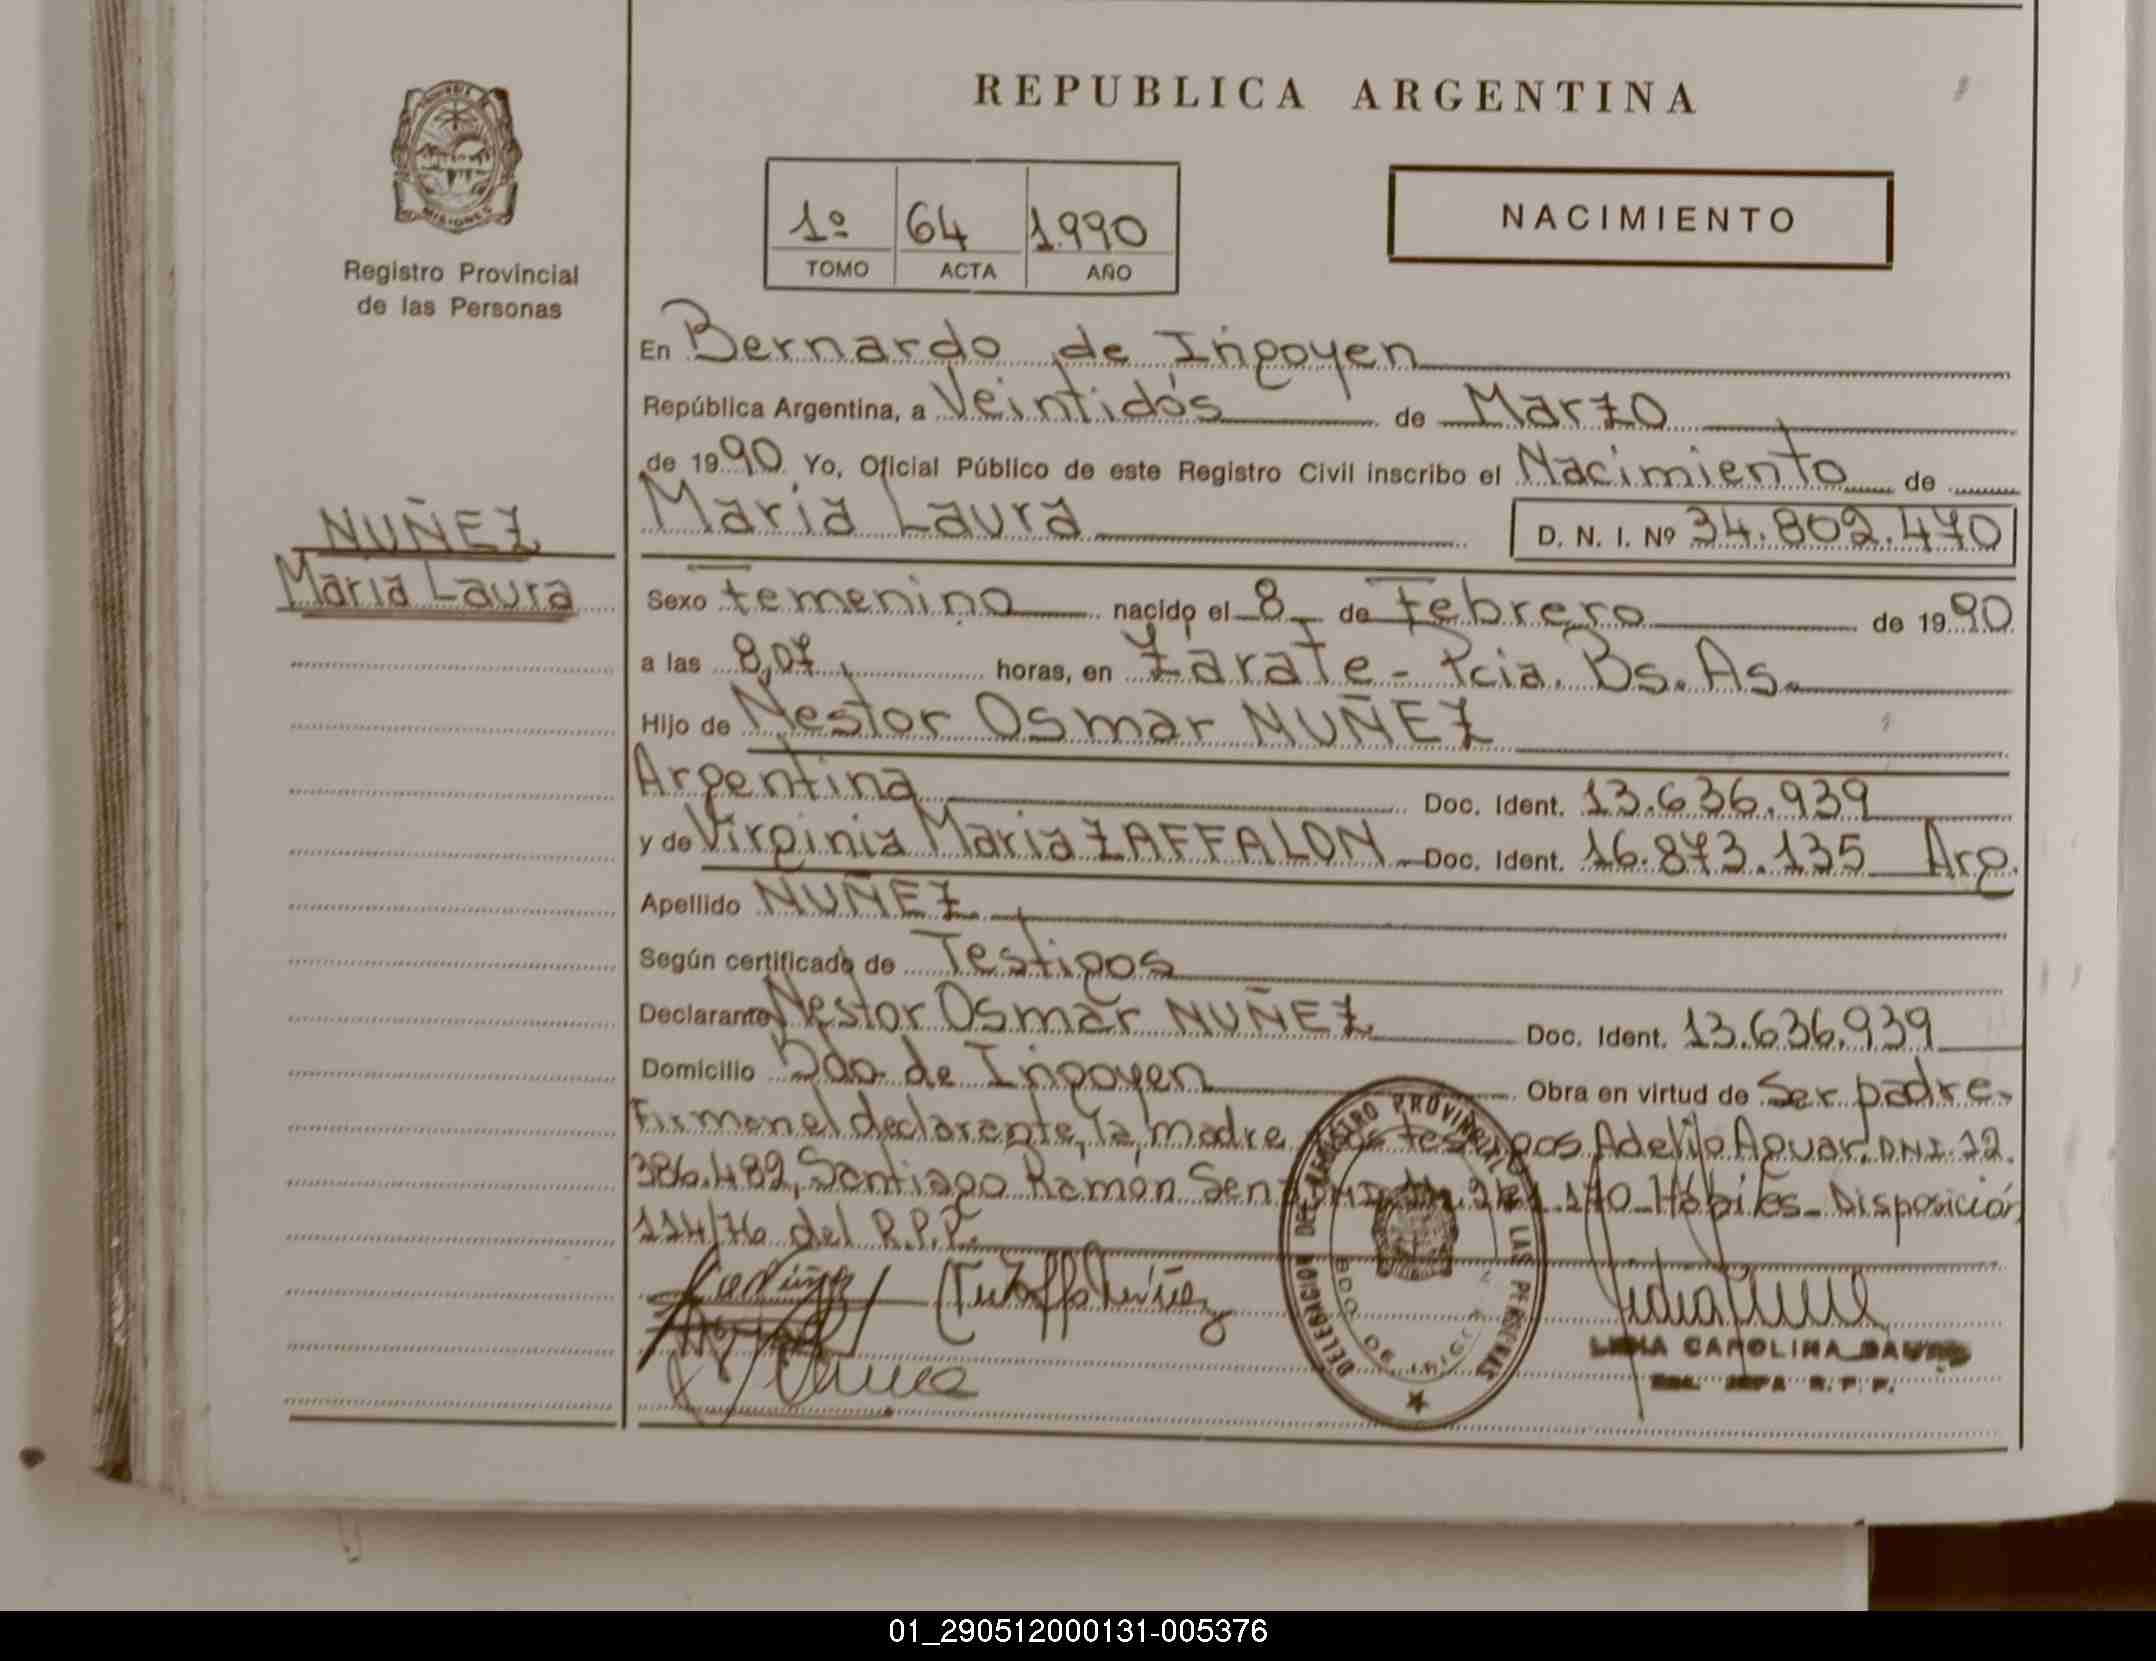 REPUBLICA ARGENTINA
MISIONES
Registro Provincial
de las Personas
1º 64 1.990
TOMO ACTA AÑO
NACIMIENTO
En Bernardo de Irigoyen
República Argentina, a Veintidós de Marzo
de 1990 Yo, Oficial Público de este Registro Civil inscribo el Nacimiento de
María Laura D. N. I. Nº 34.802.470
NUÑEZ
María Laura
Sexo Femenino nacido el 8 de Febrero de 1990
a las 8,07 horas, en Zárate - Pcia. Bs. As.
Hijo de Nestor Osmar NUÑEZ
Argentina Doc. Ident. 13.636.939
y de Virginia María ZAFFALON Doc. Ident. 16.873.135 Arg.
Apellido NUÑEZ
Según certificado de Testigos
Declarante Nestor Osmar NUÑEZ Doc. Ident. 13.636.939
Domicilio Bdo. de Irigoyen Obra en virtud de Ser padre.
Firman el declarante, la madre testigos Adelilo Aguar. DNI. 12.
386.482, Santiago Ramón 170 Hábiles. Disposición
114/76 del R.P.P.
DELEGACION DEL REGISTRO PROVINCIAL LAS PERSONAS
BDO DE IRIGOYEN
CAROLINA
R. P. P.
01_290512000131-005376